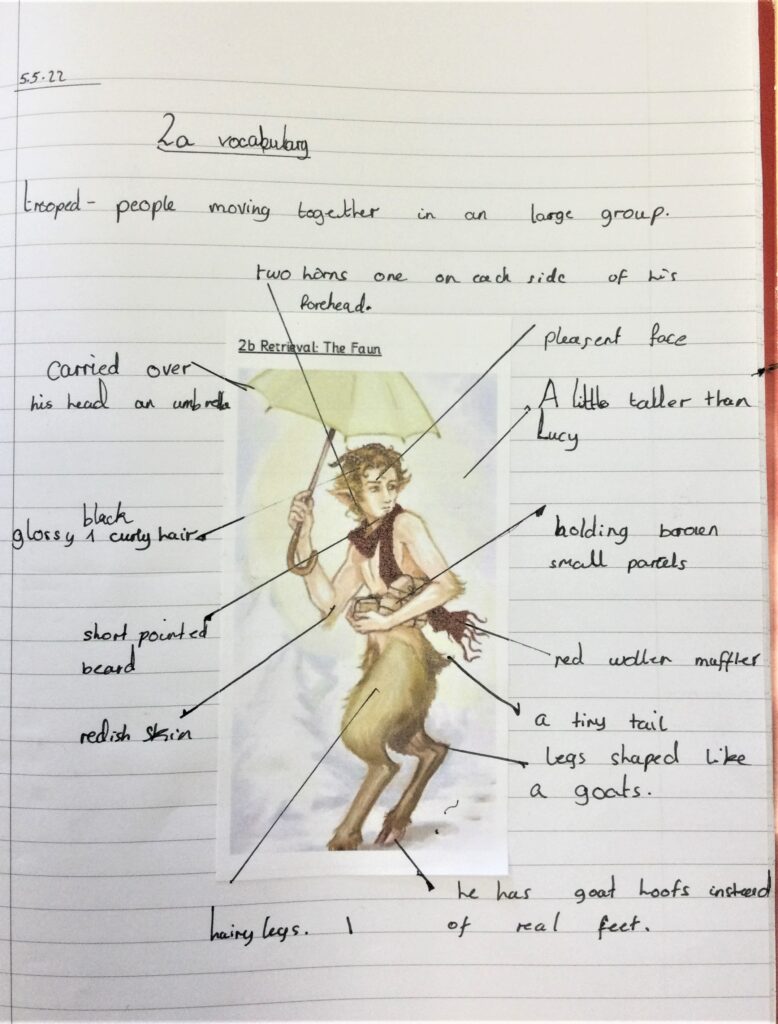 5.5.22
2a vocabulary
trooped - people moving together in an large group.
two horns one on each side of his
forehead.
2b Retrieval: The Faun
pleasent face
Carried over
his head an umbrella
A little taller than
Lucy
black
glossy ^ curly hair
holding brown
small parcels
short pointed
beard
red wollen muffler
redish skin
a tiny tail
legs shaped like
a goats.
he has goat hoofs instead
of real feet.
hairy legs.